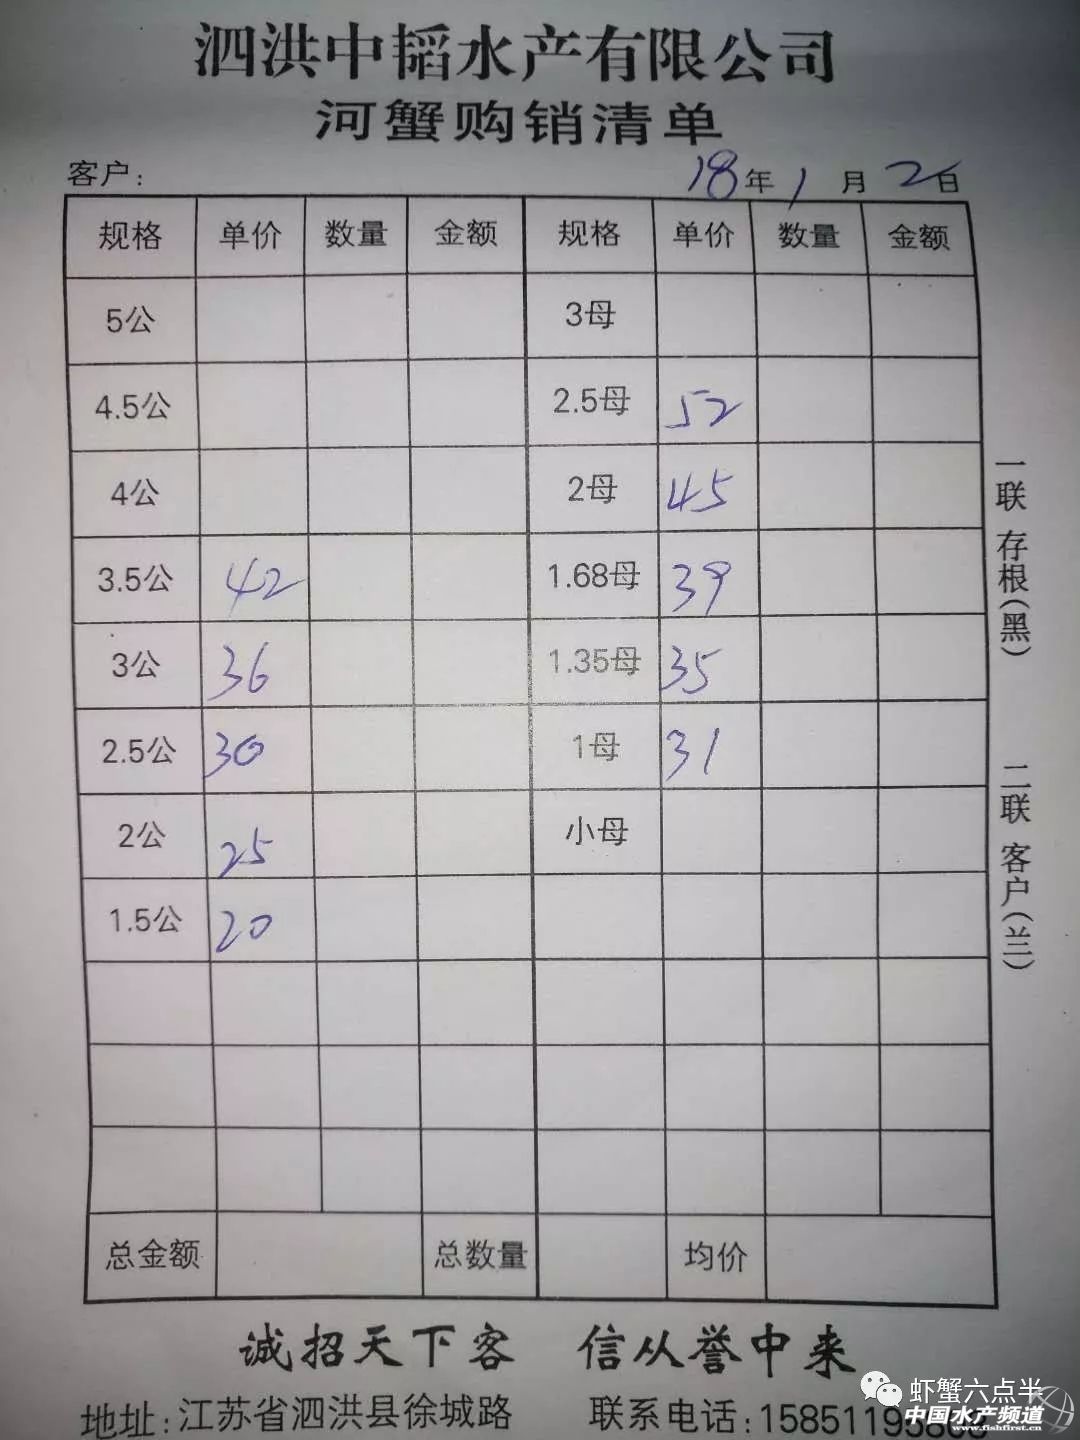 泗洪中韬水产有限公司
河蟹购销清单
客户: 18年1月2日
规格 单价 数量 金额 规格 单价 数量 金额
5公 3母
4.5公 2.5母 52
4公 2母 45
3.5公 42 1.68母 39
3公 36 1.35母 35
2.5公 30 1母 31
2公 25 小母
1.5公 20
总金额 总数量 均价
一联 存根(黑) 二联 客户(兰)
诚招天下客 信从誉中来
地址:江苏省泗洪县徐城路 联系电话:
虾蟹六点半
中国水产频道
www.fishfirst.cn